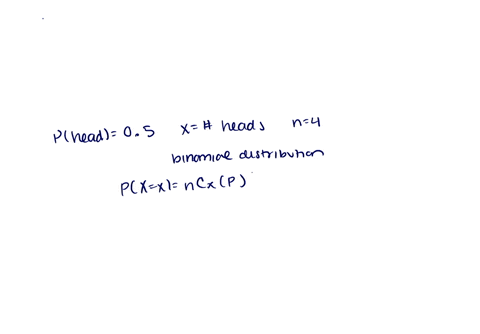 P(head)=0.5 x=# heads n=4
binomial distribution
P(X=x)=nCx(P)